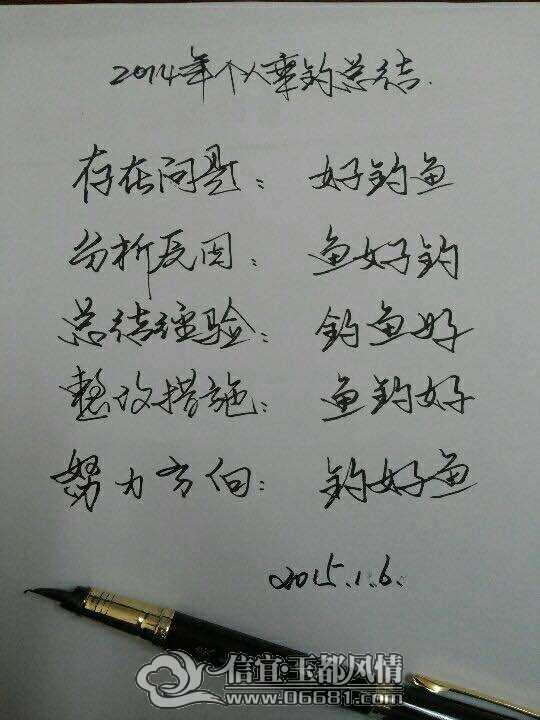 2014年个人垂钓总结.
存在问题：好钓鱼
分析原因：鱼好钓
总结经验：钓鱼好
整改措施：鱼钓好
努力方向：钓好鱼
2015.1.6.
信宜·玉都风情
www.06681.com